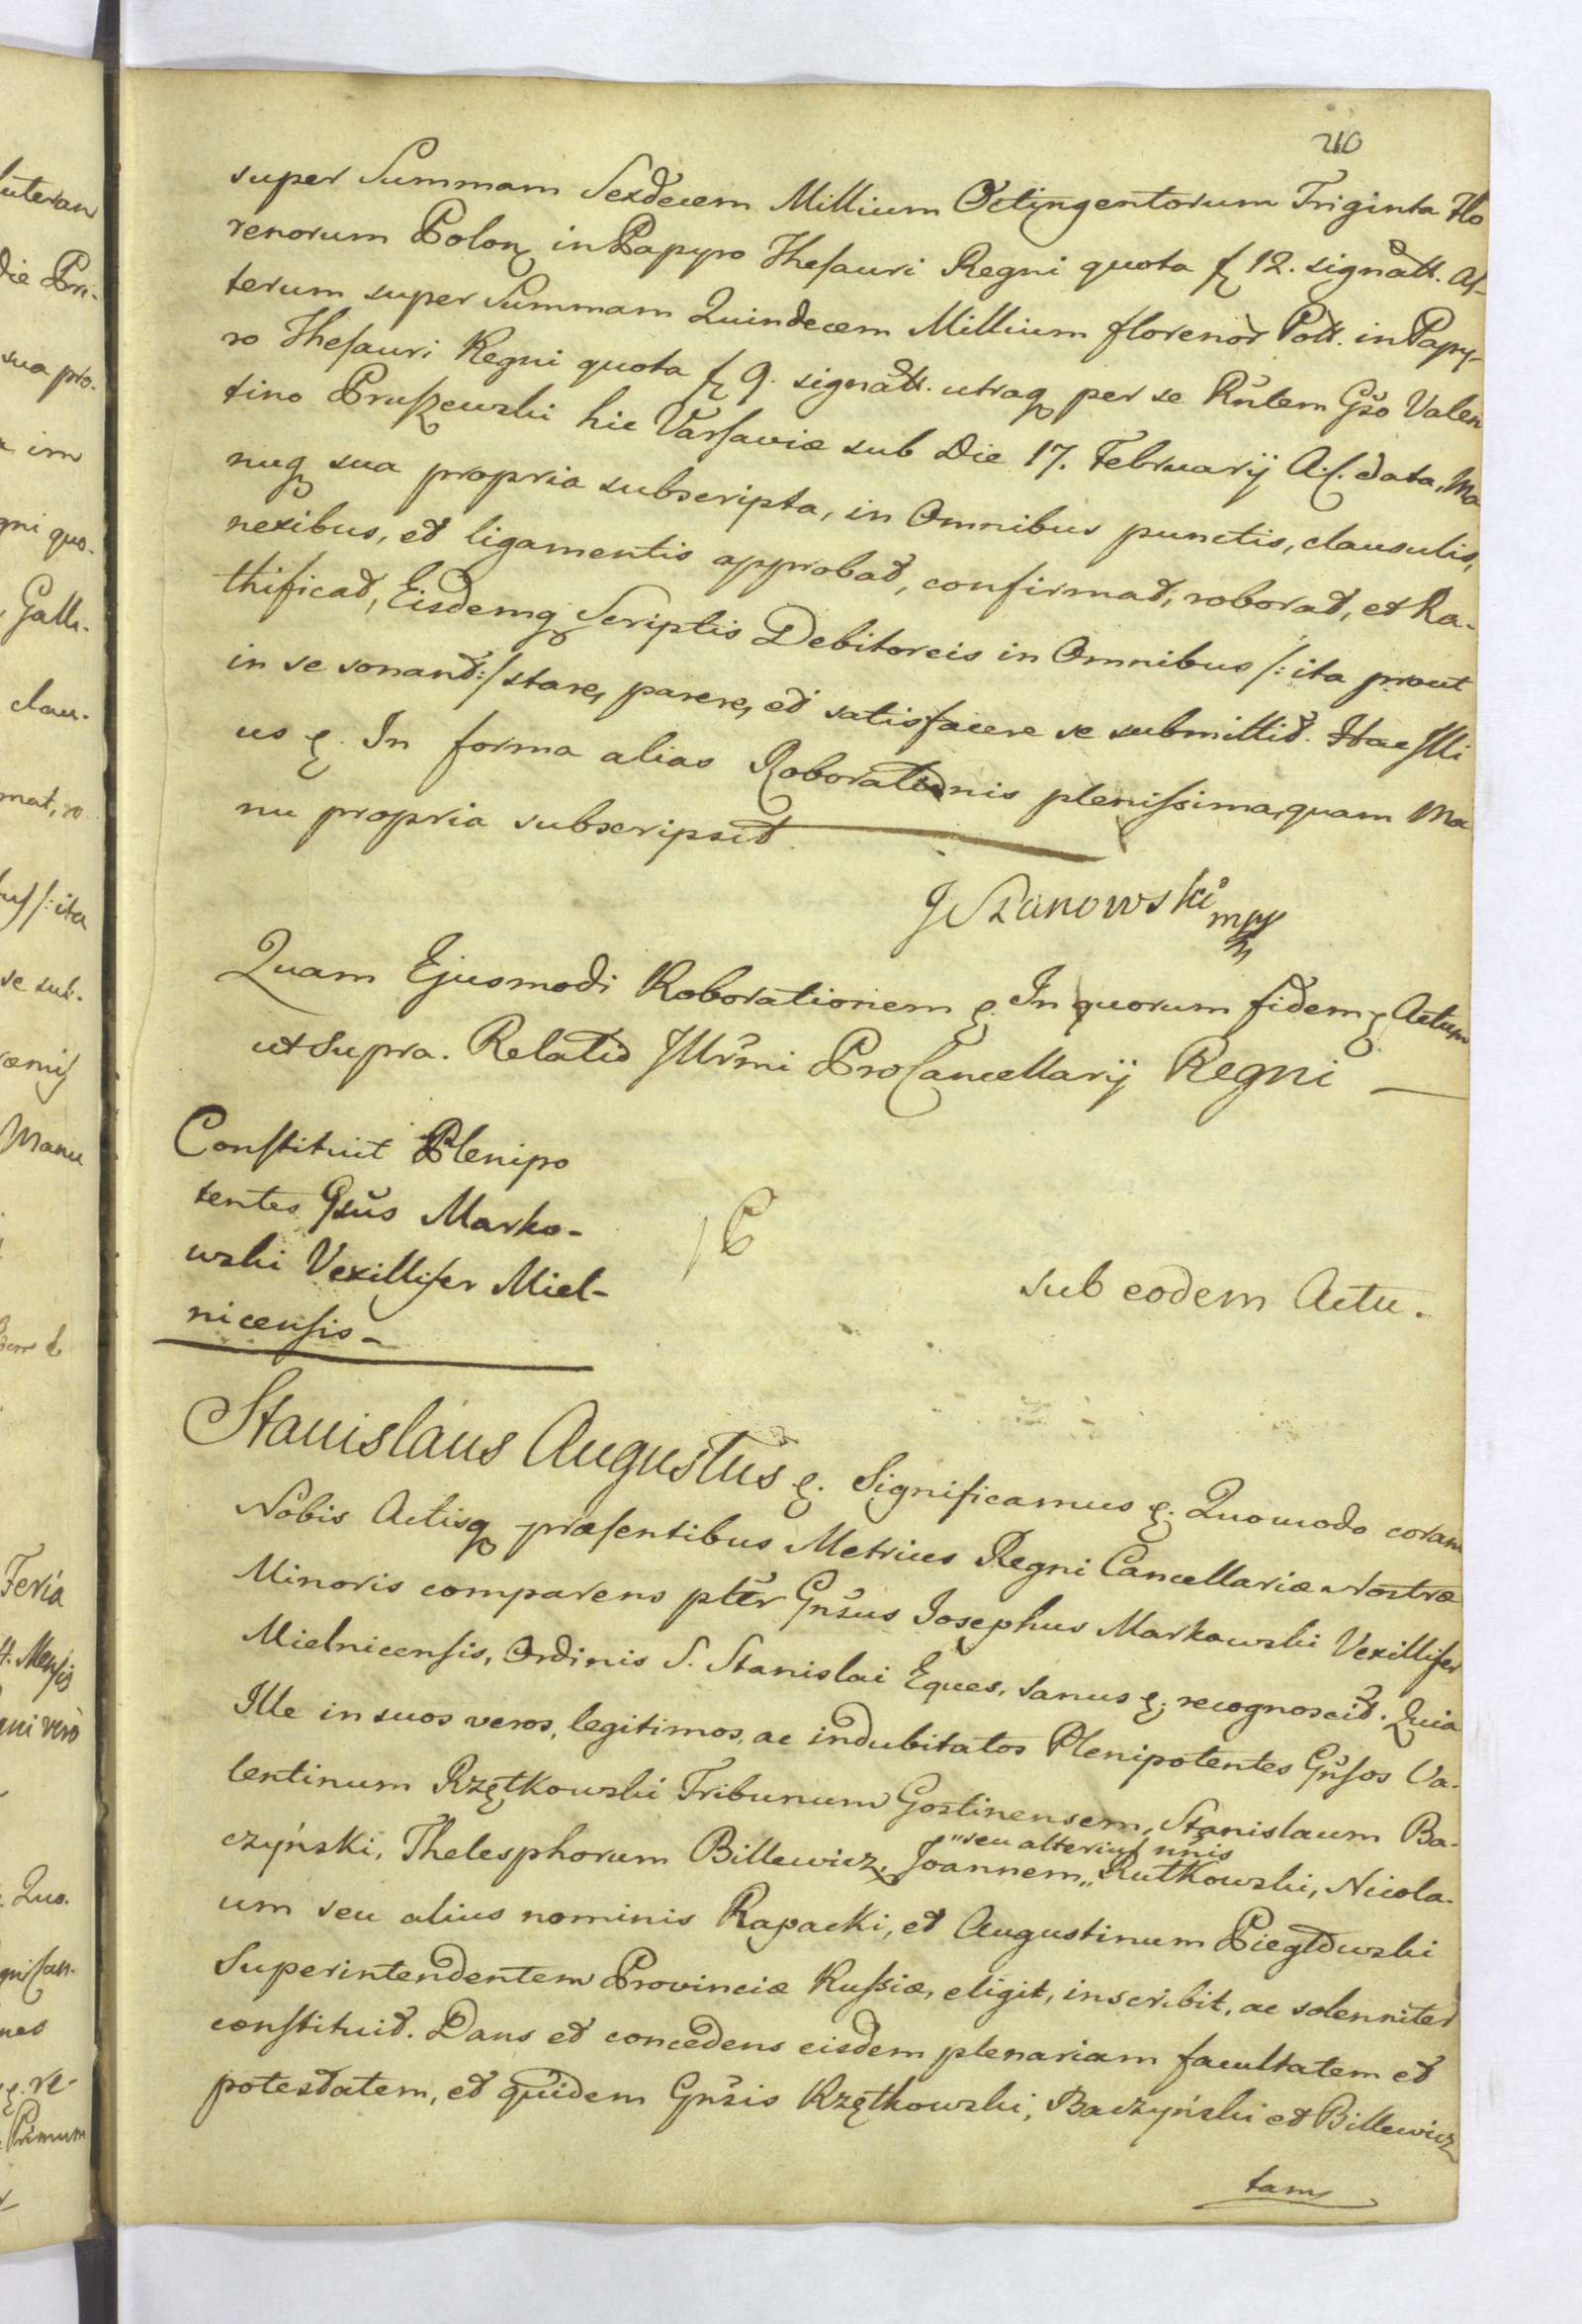 210
super Summam Sexdecem Millium Octingentorum Triginta Flo
renorum Polon in Papyro Thesauri Regni quota f 12. signatt. Al-
terum super Summam Quindecem Millium florenor Poll. in Papy-
ro Thesauri Regni quota f 9. signatt. utraq per se Rnlem Gso Valen
tino Pruszewski hic Varsaviæ sub Die 17. Februarij A. c. data, Ma
nuq sua propria subscripta, in Omnibus punctis, clausulis,
nexibus, et ligamentis approbat, confirmat, roborat, et Ra-
thificat, Eisdemq Scriptis Debitoreis in Omnibus /: ita prout
in se sonant :/ stare, parere, et satisfacere se submittit. Hac Illi
us &. In forma alias Roborationis plenissima, quam Ma
nu propria subscripsit.
JSzanowski mpp
Quam Ejusmodi Roborationem &. In quorum fidem & Actum
ut Supra. Relatio Illrmi ProCancellarij Regni —
Constituit Plenipo
tentes Gsus Marko-
wski Vexillifer Miel-
nicensis -
sub eodem Actu.
Stanislaus Augustus &. Significamus &. Quomodo coram
Nobis Actisq præsentibus Metrices Regni Cancellariæ Nostræ
Minoris comparens pltr Gnsus Josephus Markowski Vexillifer
Mielnicensis, Ordinis S. Stanislai Eques, sanus &. recognoscit. Quia
Ille in suos veros, legitimos, ac indubitatos Plenipotentes Gnsos Va-
lentinum Rzętkowski Tribunum Gostinensem, Stanislaum Ba-
"seu alterius nnis
czyński, Thelesphorum Billewicz, Joannem,, Rutkowski, Nicola-
um seu alius nominis Rapacki, et Augustinum Piegłowski
Superintendentem Provinciæ Russiæ, eligit, inscribit, ac solenniter
constituit. Dans et concedens eisdem plenariam facultatem et
potestatem, et quidem Gnsis Rzętkowski, Baczyński et Billewicz
tam